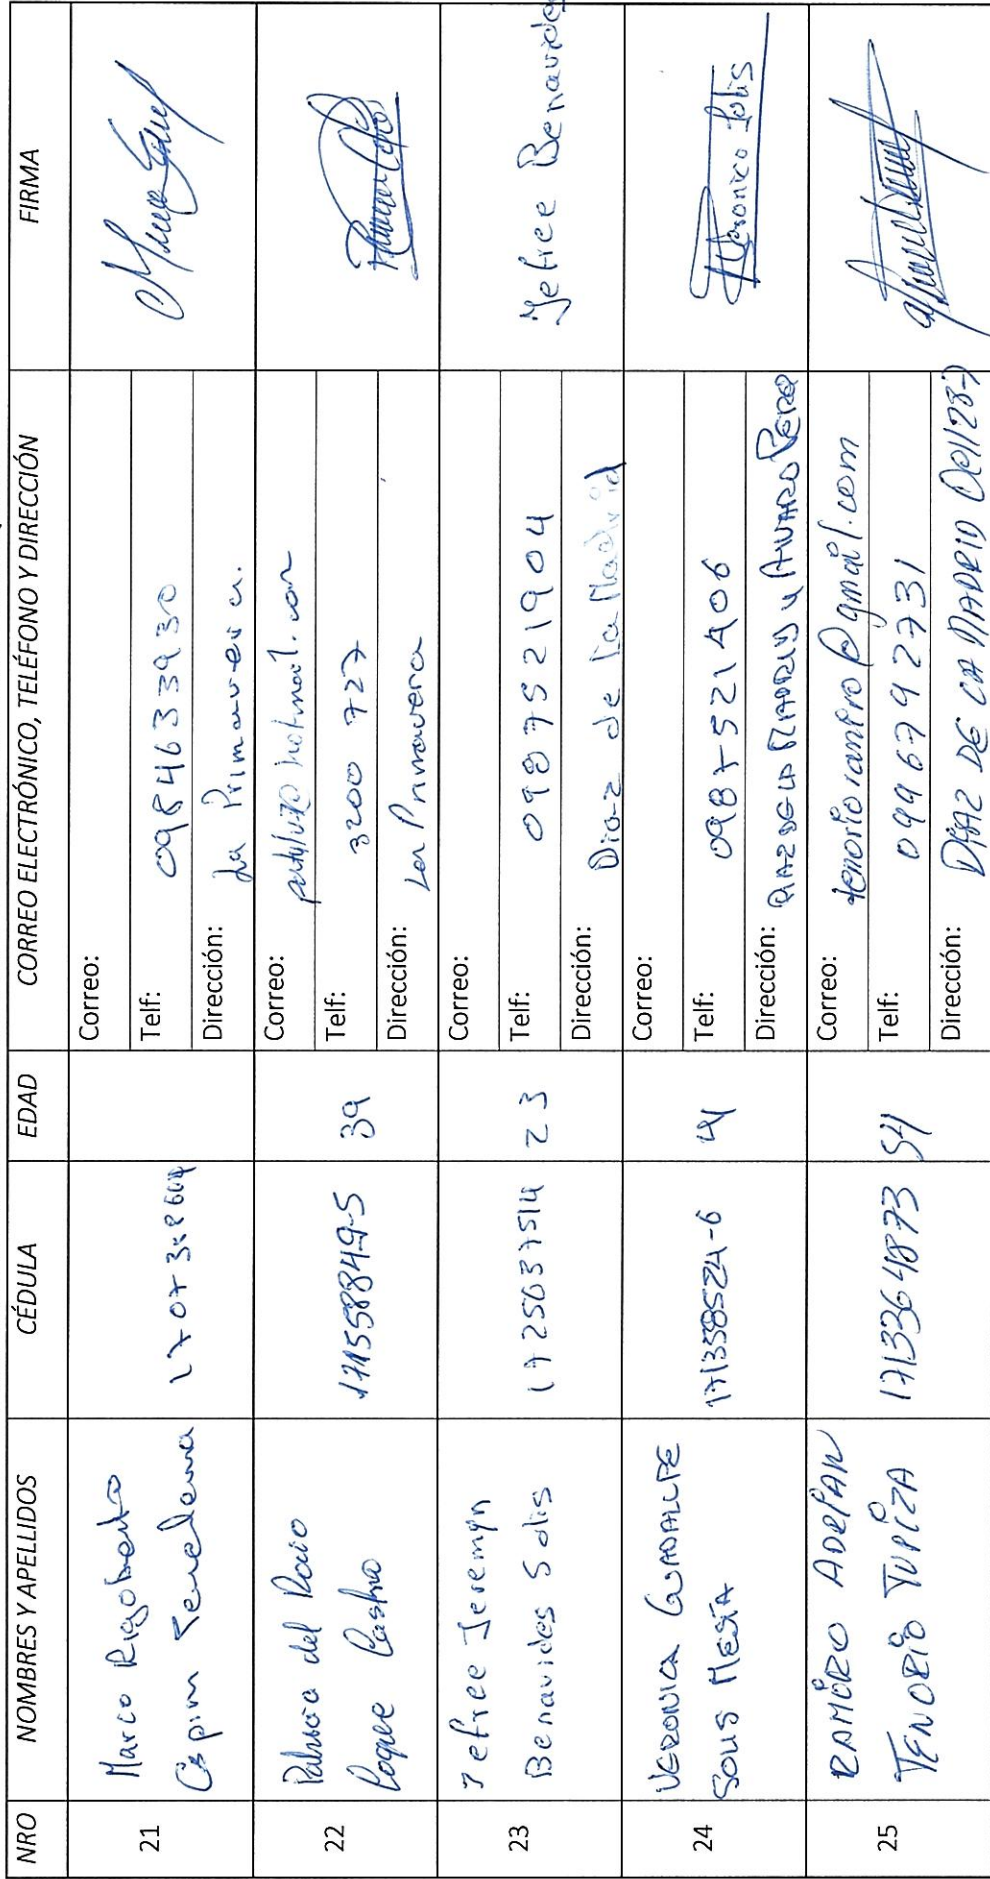 NRO NOMBRES Y APELLIDOS CÉDULA EDAD CORREO ELECTRÓNICO, TELÉFONO Y DIRECCIÓN FIRMA
21
Marco Rigoberto
Espin
Correo:
Telf: 0984633930
Dirección: La Primavera.
22
del Rocio
Coque Castro
171558849-5
39
Correo: hotmail.com
Telf: 3200 727
Dirección: La Primavera
23
Jefree Jeremyn
Benavides Solis
1725637514
23
Correo:
Telf: 0987521904
Dirección: Diaz de la Madrid
Jefree Benavides
24
VERONICA GUADALUPE
SOLIS MESIA
171358524-6
41
Correo:
Telf: 0987521406
Dirección: DIAZ DE LA MADRID Y
Veronica Solis
25
RAMIRO ADRIAN
TENORIO TUPIZA
1713364873
54
Correo: tenorioramiro@gmail.com
Telf: 0996792731
Dirección: DIAZ DE LA MADRID